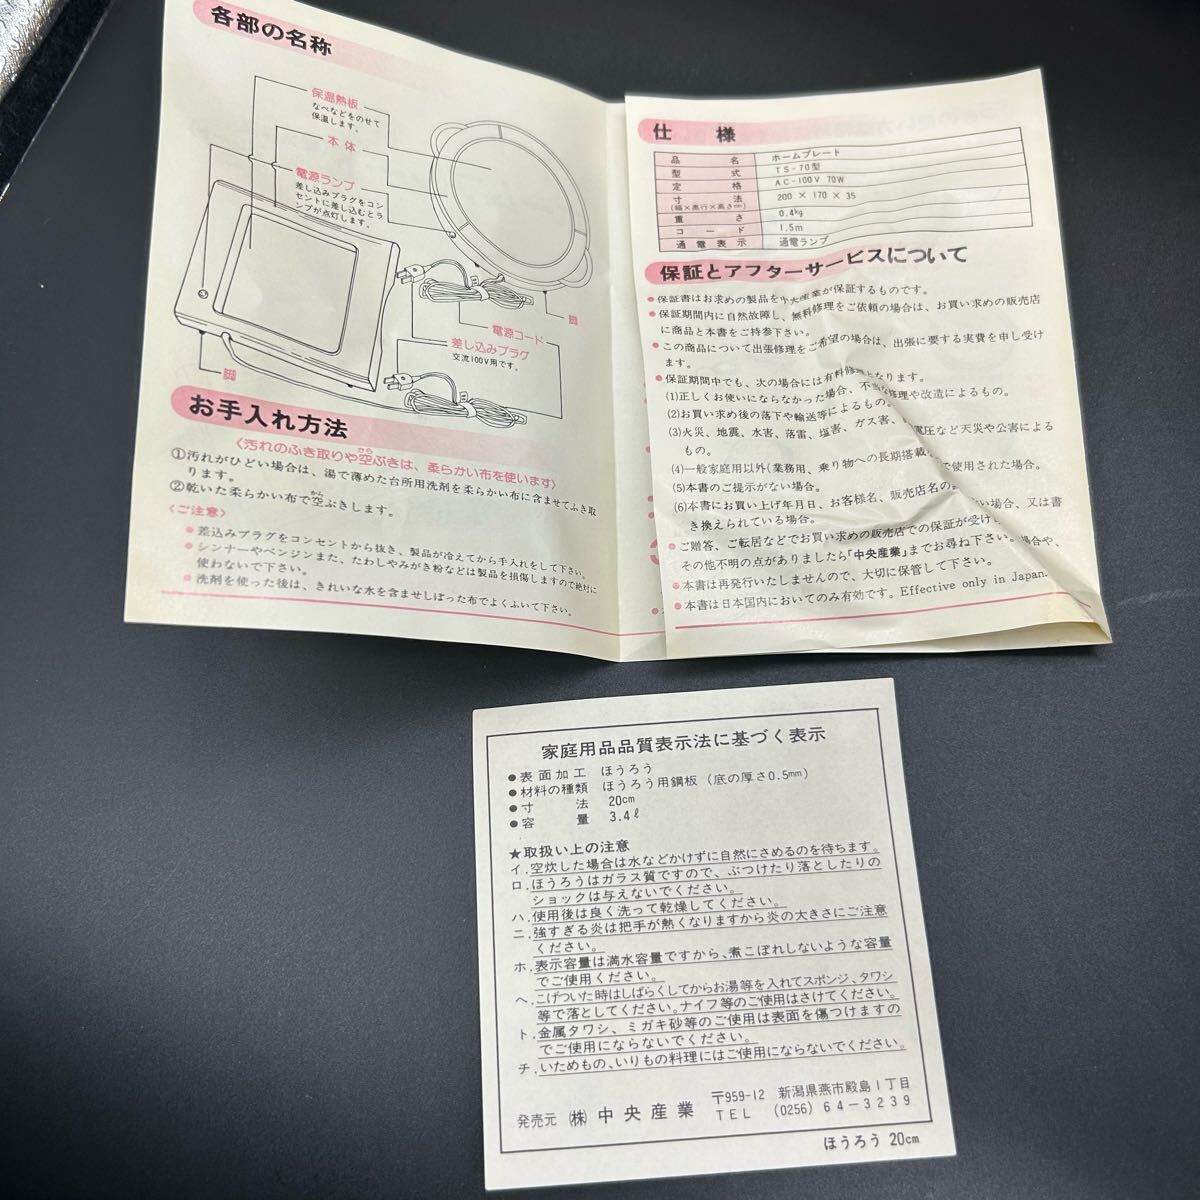 各部の名称
保温熱板
なべなどをのせて
保温します。
本体
電源ランプ
差し込みプラグをコン
セントに差し込むとラ
ンプが点灯します。
脚
電源コード
差し込みプラグ
交流100V用です。
脚
お手入れ方法
〈汚れのふき取りや空ぶきは、柔らかい布を使います〉
から
①汚れがひどい場合は、湯で薄めた台所用洗剤を柔らかい布に含ませてふき取
ります。
から
②乾いた柔らかい布で空ぶきします。
〈ご注意〉
●差込みプラグをコンセントから抜き、製品が冷えてから手入れをして下さい。
●シンナーやベンジンまた、たわしやみがき粉などは製品を損傷しますので絶対に
使わないで下さい。
●洗剤を使った後は、きれいな水を含ませしぼった布でよくふいて下さい。
仕様
品名 ホームプレート
型式 TS-70型
定格 AC-100V 70W
寸法 200 × 170 × 35
(幅×奥行×高さmm)
重さ 0.4kg
コード 1.5m
通電表示 通電ランプ
保証とアフターサービスについて
●保証書はお求めの製品を中央産業が保証するものです。
●保証期間内に自然故障し、無料修理をご依頼の場合は、お買い求めの販売店
に商品と本書をご持参下さい。
●この商品について出張修理をご希望の場合は、出張に要する実費を申し受け
ます。
●保証期間中でも、次の場合には有料修理となります。
(1)正しくお使いにならなかった場合、不当な修理や改造によるもの。
(2)お買い求め後の落下や輸送等によるもの。
(3)火災、地震、水害、落雷、塩害、ガス害、電圧など天災や公害による
もの。
(4)一般家庭用以外(業務用、乗り物への長期搭載 で使用された場合。
(5)本書のご提示がない場合。
(6)本書にお買い上げ年月日、お客様名、販売店名の ない場合、又は書
き換えられている場合。
●ご贈答、ご転居などでお買い求めの販売店での保証が受け 場合や、
その他不明の点がありましたら「中央産業」までお尋ね下さい。
●本書は再発行いたしませんので、大切に保管して下さい。
●本書は日本国内においてのみ有効です。Effective only in Japan.
家庭用品品質表示法に基づく表示
●表面加工 ほうろう
●材料の種類 ほうろう用鋼板（底の厚さ0.5mm）
●寸法 20cm
●容量 3.4ℓ
★取扱い上の注意
イ.空炊した場合は水などかけずに自然にさめるのを待ちます。
ロ.ほうろうはガラス質ですので、ぶつけたり落としたりの
ショックは与えないでください。
ハ.使用後は良く洗って乾燥してください。
ニ.強すぎる炎は把手が熱くなりますから炎の大きさにご注意
ください。
ホ.表示容量は満水容量ですから、煮こぼれしないような容量
でご使用ください。
ヘ.こげついた時はしばらくしてからお湯等を入れてスポンジ、タワシ
等で落としてください。ナイフ等のご使用はさけてください。
ト.金属タワシ、ミガキ砂等のご使用は表面を傷つけますの
でご使用にならないでください。
チ.いためもの、いりもの料理にはご使用にならないでください。
発売元 ㈱中央産業 〒959-12 新潟県燕市殿島1丁目
TEL (0256) 64-3239
ほうろう 20cm